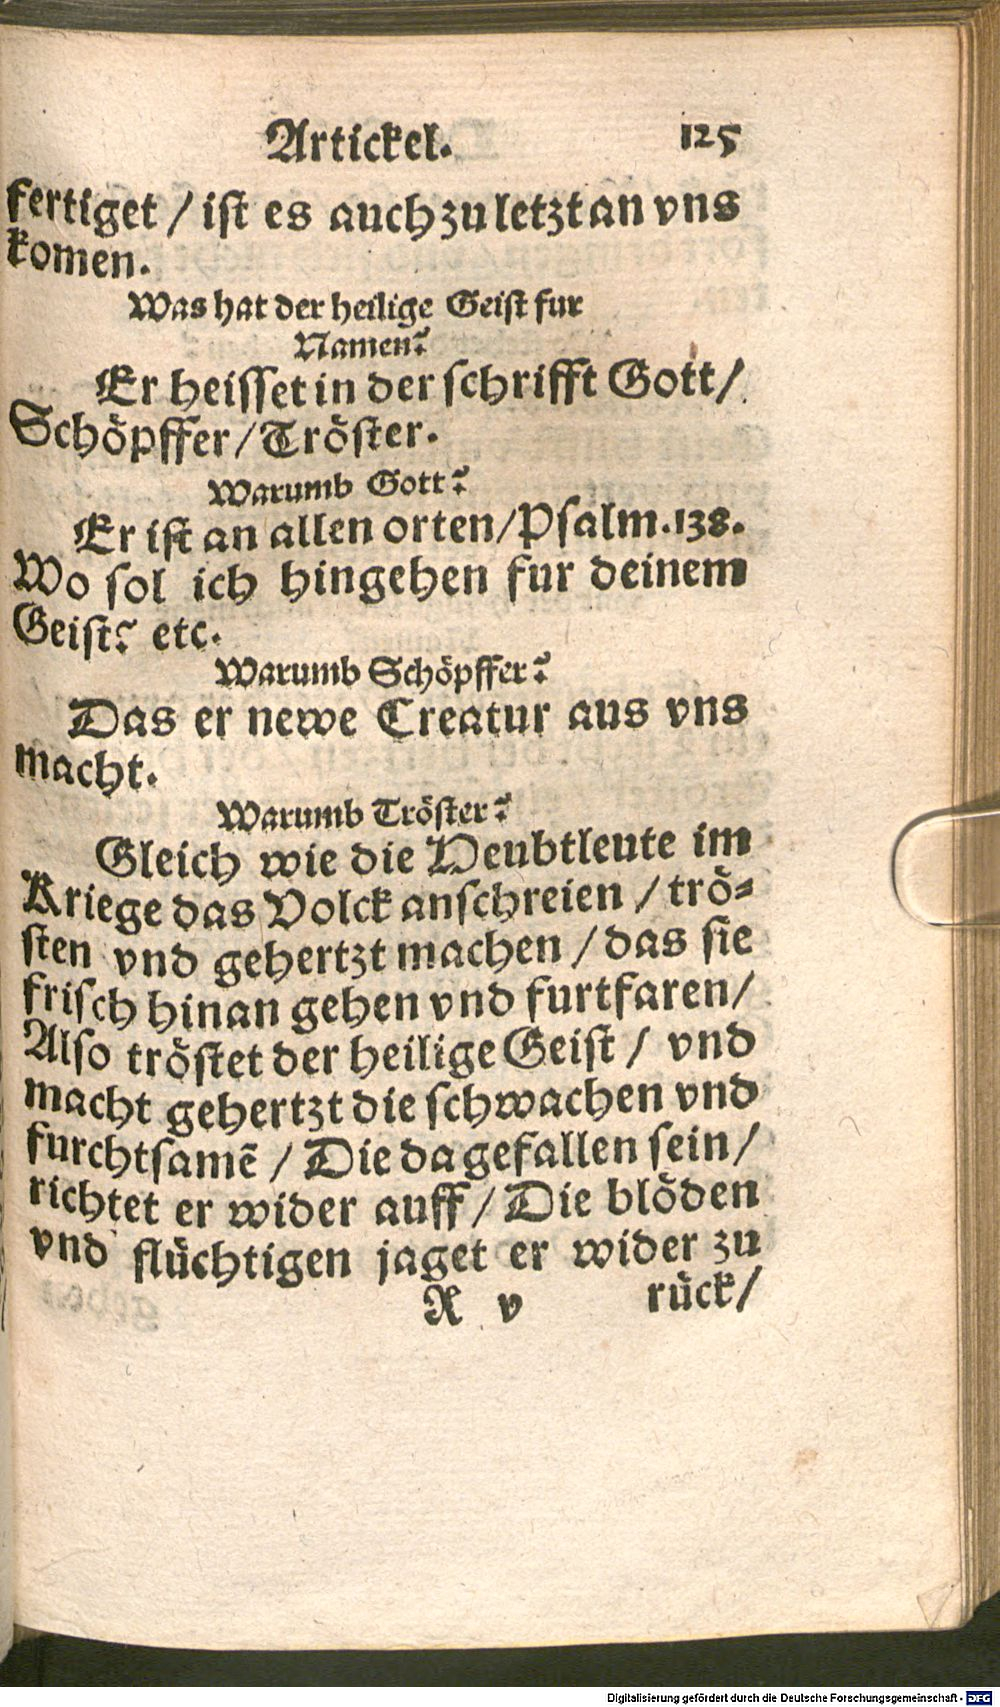 Artickel. 125
fertiget / ist es auch zu letzt an vns
komen.
Was hat der heilige Geist fur
Namen?
Er heisset in der schrifft Gott /
Schöpffer / Tröster.
Warumb Gott?
Er ist an allen orten / Psalm. 138.
Wo sol ich hingehen fur deinem
Geist? etc.
Warumb Schöpffer?
Das er newe Creatur aus vns
macht.
Warumb Tröster?
Gleich wie die Heubtleute im
Kriege das Volck anschreien / trö-
sten vnd gehertzt machen / das sie
frisch hinan gehen vnd furtfaren /
Also tröstet der heilige Geist / vnd
macht gehertzt die schwachen vnd
furchtsamē / Die da gefallen sein /
richtet er wider auff / Die blöden
vnd flüchtigen jaget er wider zu
R v rück /
Digitalisierung gefördert durch die Deutsche Forschungsgemeinschaft - DFG